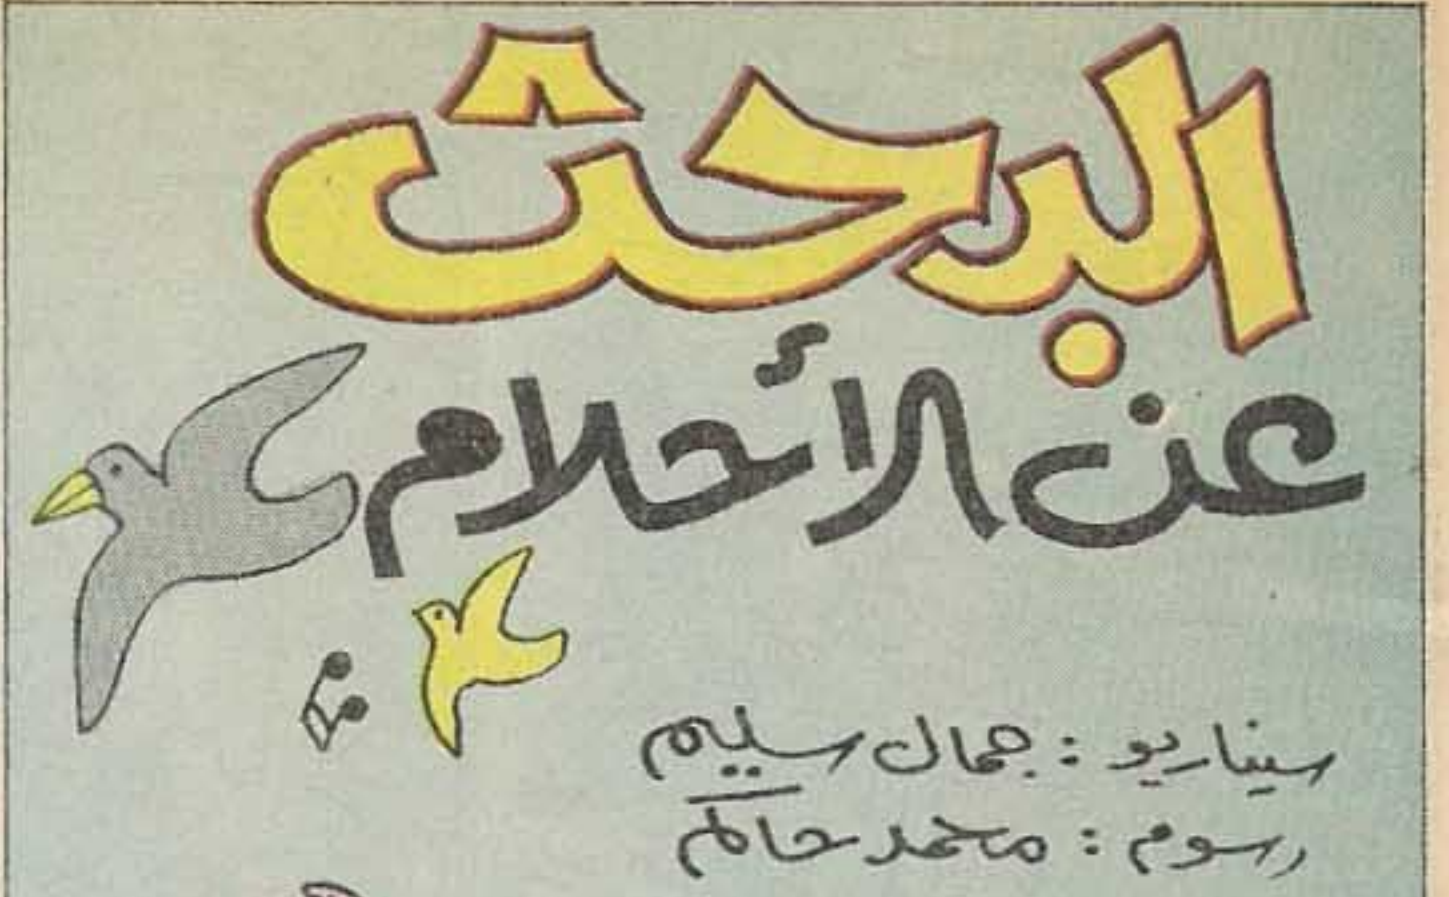 البحث
عن الأحلام
سيناريو : جمال سليم
رسوم : محمد حاكم